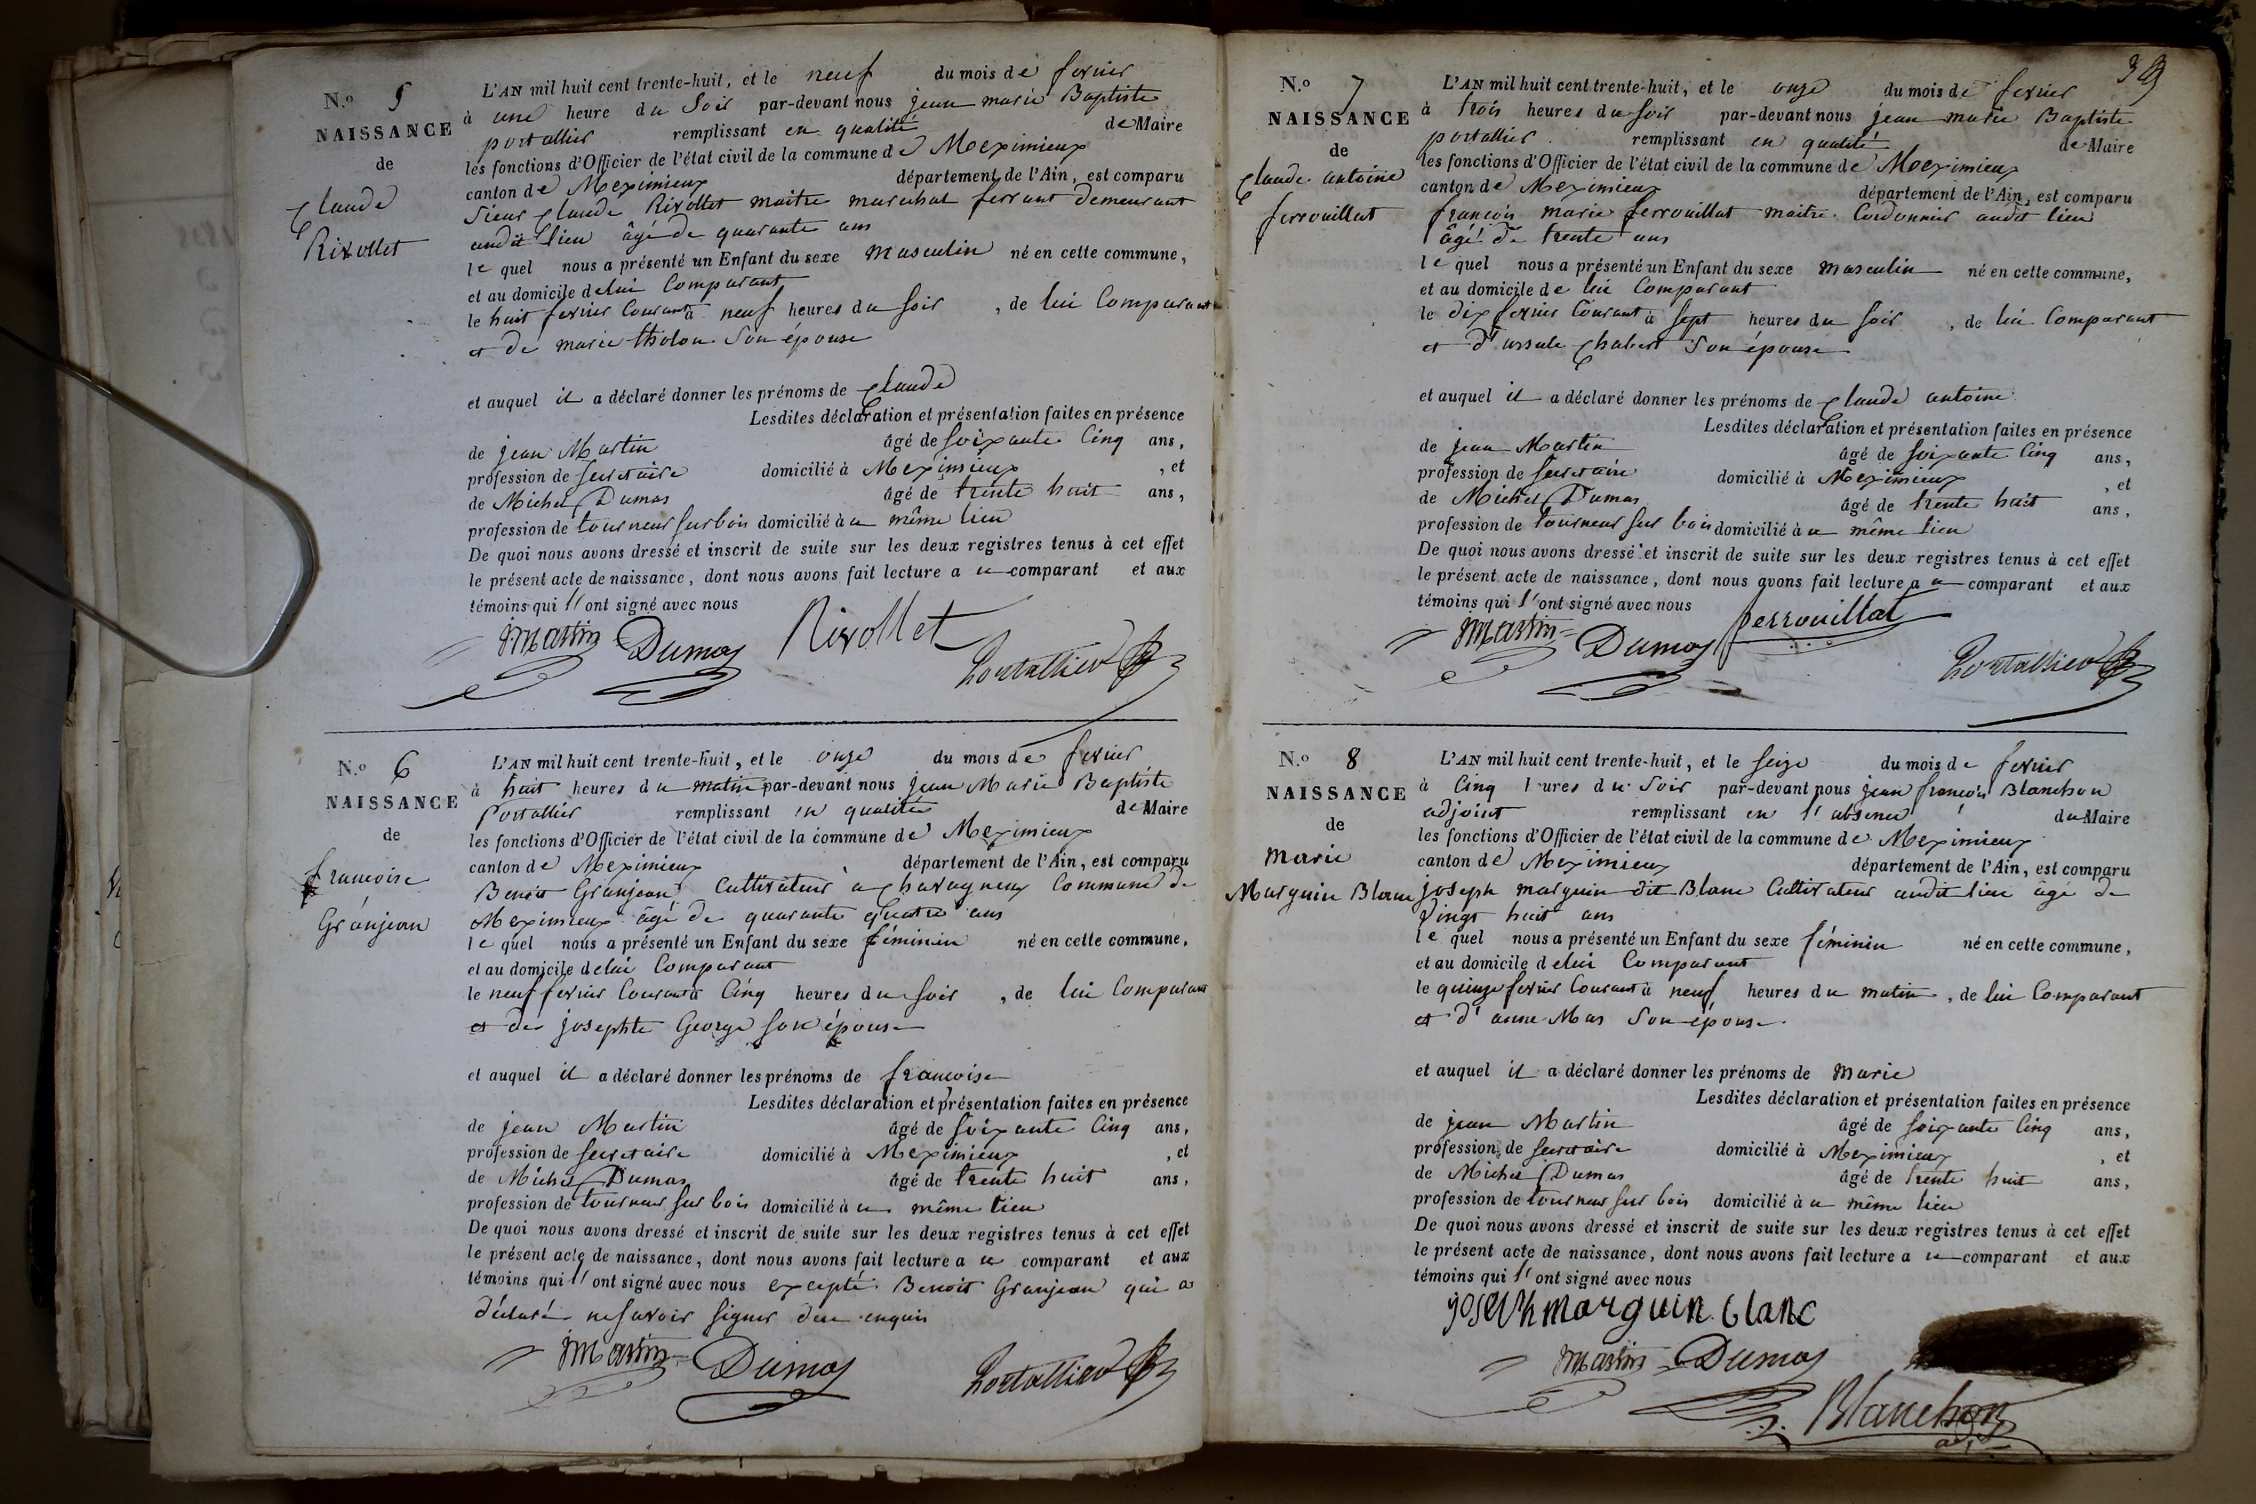 N.o 5
NAISSANCE
de
Claude
Rivollet
L'AN mil huit cent trente-huit, et le neuf du mois de fevrier
à une heure du Soir par-devant nous jean marie Baptiste
portallier remplissant en qualité de Maire
les fonctions d'Officier de l'état civil de la commune de Meximieux
canton de Meximieux département de l'Ain, est comparu
Sieur Claude Rivollet maitre marechal ferrant demeurant
audit lieu âgé de quarante ans
le quel nous a présenté un Enfant du sexe masculin né en cette commune,
et au domicile de lui Comparant
le huit fevrier Courant à neuf heures du Soir , de lui Comparant
et de marie tholon Son épouse
et auquel il a déclaré donner les prénoms de Claude
Lesdites déclaration et présentation faites en présence
de jean Martin âgé de Soixante Cinq ans,
profession de Secretaire domicilié à Meximieux , et
de Michel Dumas âgé de trente huit ans,
profession de tourneur Sur bois domicilié à u même lieu
De quoi nous avons dressé et inscrit de suite sur les deux registres tenus à cet effet
le présent acte de naissance, dont nous avons fait lecture a u comparant et aux
témoins qui l' ont signé avec nous
jmartin Dumas Rivollet
Portallier
N.o 6
NAISSANCE
de
francoise
Granjean
L'AN mil huit cent trente-huit, et le onze du mois de fevrier
à huit heures du matin par-devant nous jean Marie Baptiste
Portallier remplissant en qualité de Maire
les fonctions d'Officier de l'état civil de la commune de Meximieux
canton de Meximieux département de l'Ain, est comparu
Benoit Granjean Cultivateur a Chavagneux Commune de
Meximieux âgé de quarante quatre ans
le quel nous a présenté un Enfant du sexe féminin né en cette commune,
et au domicile de lui Comparant
le neuf fevrier Courant à Cinq heures du Soir , de lui Comparant
et de josephte George Son épouse
et auquel il a déclaré donner les prénoms de francoise
Lesdites déclaration et présentation faites en présence
de jean Martin âgé de Soixante Cinq ans,
profession de Secretaire domicilié à Meximieux , et
de Michel Dumas âgé de trente huit ans,
profession de tourneur Sur bois domicilié à u même lieu
De quoi nous avons dressé et inscrit de suite sur les deux registres tenus à cet effet
le présent acte de naissance, dont nous avons fait lecture a u comparant et aux
témoins qui l' ont signé avec nous excepté Benoit Granjean qui a
déclaré ne Savoir Signer de ce enquis
jmartin Dumas Portallier
N.o 7
NAISSANCE
de
Claude antoine
ferrouillat
L'AN mil huit cent trente-huit, et le onze du mois de fevrier
à trois heures du Soir par-devant nous jean marie Baptiste
portallier remplissant en qualité de Maire
les fonctions d'Officier de l'état civil de la commune de Meximieux
canton de Meximieux département de l'Ain, est comparu
françois marie ferrouillat maitre Cordonnier audit lieu
âgé de trente ans
le quel nous a présenté un Enfant du sexe masculin né en cette commune,
et au domicile de lui Comparant
le dix fevrier Courant à Sept heures du Soir , de lui Comparant
et d'ursule Chabert Son épouse
et auquel il a déclaré donner les prénoms de Claude antoine
Lesdites déclaration et présentation faites en présence
de jean Martin âgé de Soixante Cinq ans,
profession de Secretaire domicilié à Meximieux , et
de Michel Dumas âgé de trente huit ans,
profession de tourneur Sur bois domicilié à u même lieu
De quoi nous avons dressé et inscrit de suite sur les deux registres tenus à cet effet
le présent acte de naissance, dont nous avons fait lecture a u comparant et aux
témoins qui l' ont signé avec nous
jmartin Dumas ferrouillat
Portallier
N.o 8
NAISSANCE
de
marie
Marguin Blanc
L'AN mil huit cent trente-huit, et le Seize du mois de fevrier
à Cinq heures du Soir par-devant nous jean françois Blanchon
adjoint remplissant en l'absence du Maire
les fonctions d'Officier de l'état civil de la commune de Meximieux
canton de Meximieux département de l'Ain, est comparu
joseph marguin dit Blanc Cultivateur audit lieu âgé de
Vingt huit ans
le quel nous a présenté un Enfant du sexe féminin né en cette commune,
et au domicile de lui Comparant
le quinze fevrier Courant à neuf heures du matin , de lui Comparant
et d'anne Mas Son épouse
et auquel il a déclaré donner les prénoms de Marie
Lesdites déclaration et présentation faites en présence
de jean Martin âgé de Soixante Cinq ans,
profession de Secretaire domicilié à Meximieux , et
de Michel Dumas âgé de trente huit ans,
profession de tourneur Sur bois domicilié à u même lieu
De quoi nous avons dressé et inscrit de suite sur les deux registres tenus à cet effet
le présent acte de naissance, dont nous avons fait lecture a u comparant et aux
témoins qui l' ont signé avec nous
joseph marguin blanc
jmartin Dumas
Blanchon